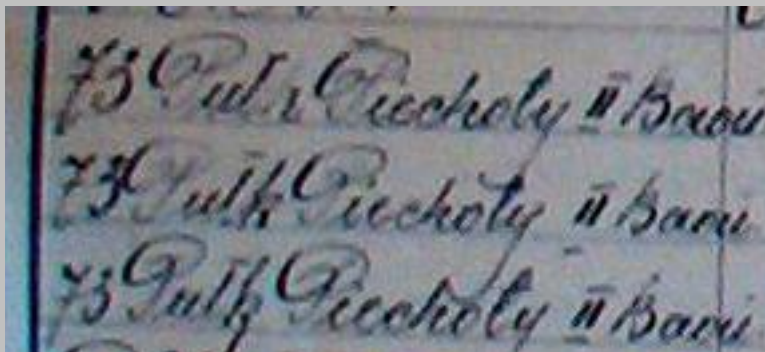 73 Pułk Piechoty II Baon
73 Pułk Piechoty II Baon
73 Pułk Piechoty II Baon